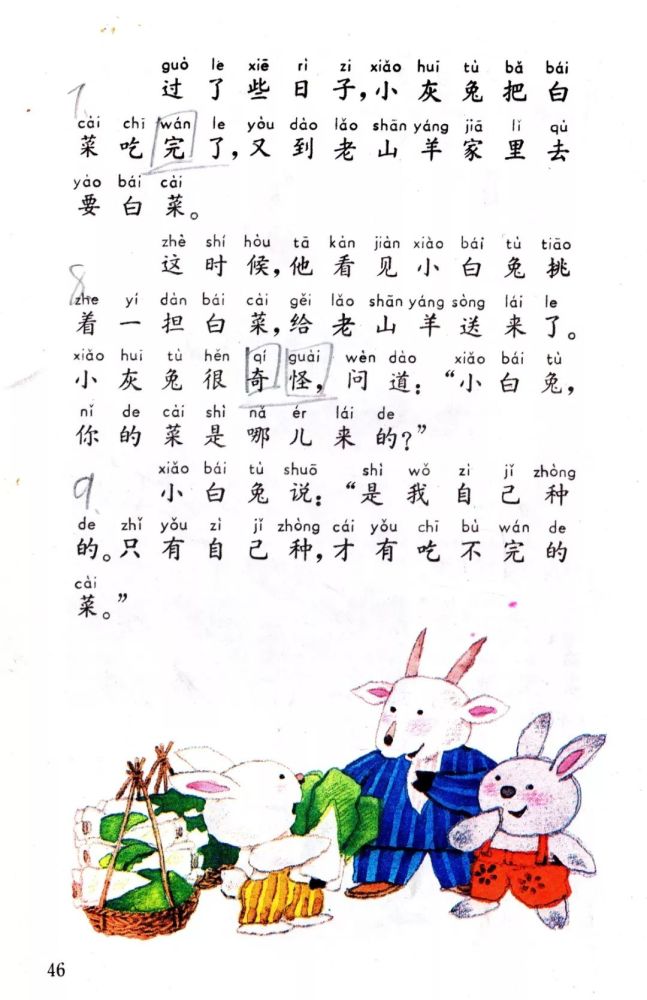 guò le xiē rì zi xiǎo huī tù bǎ bái
7. 过了些日子,小灰兔把白
cài chī wán le yòu dào lǎo shān yáng jiā lǐ qù
菜吃完了,又到老山羊家里去
yào bái cài
要白菜。
zhè shí hòu tā kàn jiàn xiǎo bái tù tiāo
8. 这时候,他看见小白兔挑
zhe yí dàn bái cài gěi lǎo shān yáng sòng lái le
着一担白菜,给老山羊送来了。
xiǎo huī tù hěn qí guài wèn dào xiǎo bái tù
小灰兔很奇怪,问道:“小白兔,
nǐ de cài shì nǎ ér lái de
你的菜是哪儿来的?”
xiǎo bái tù shuō shì wǒ zì jǐ zhòng
9. 小白兔说:“是我自己种
de zhǐ yǒu zì jǐ zhòng cái yǒu chī bù wán de
的。只有自己种,才有吃不完的
cài
菜。”
46